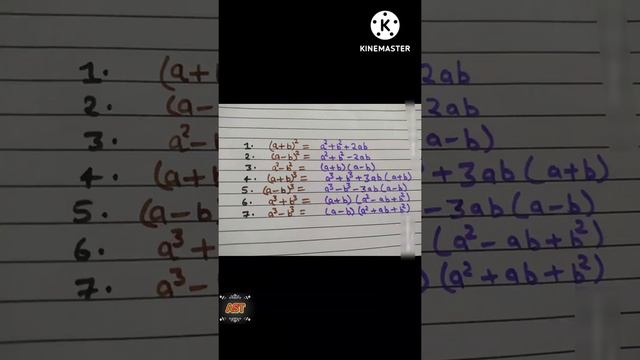 KINEMASTER
1. (a+b)² = a²+b²+2ab
2. (a-b)² = a²+b²-2ab
3. a²-b² = (a+b)(a-b)
4. (a+b)³ = a³+b³+3ab(a+b)
5. (a-b)³ = a³-b³-3ab(a-b)
6. a³+b³ = (a+b)(a²-ab+b²)
7. a³-b³ = (a-b)(a²+ab+b²)
AST